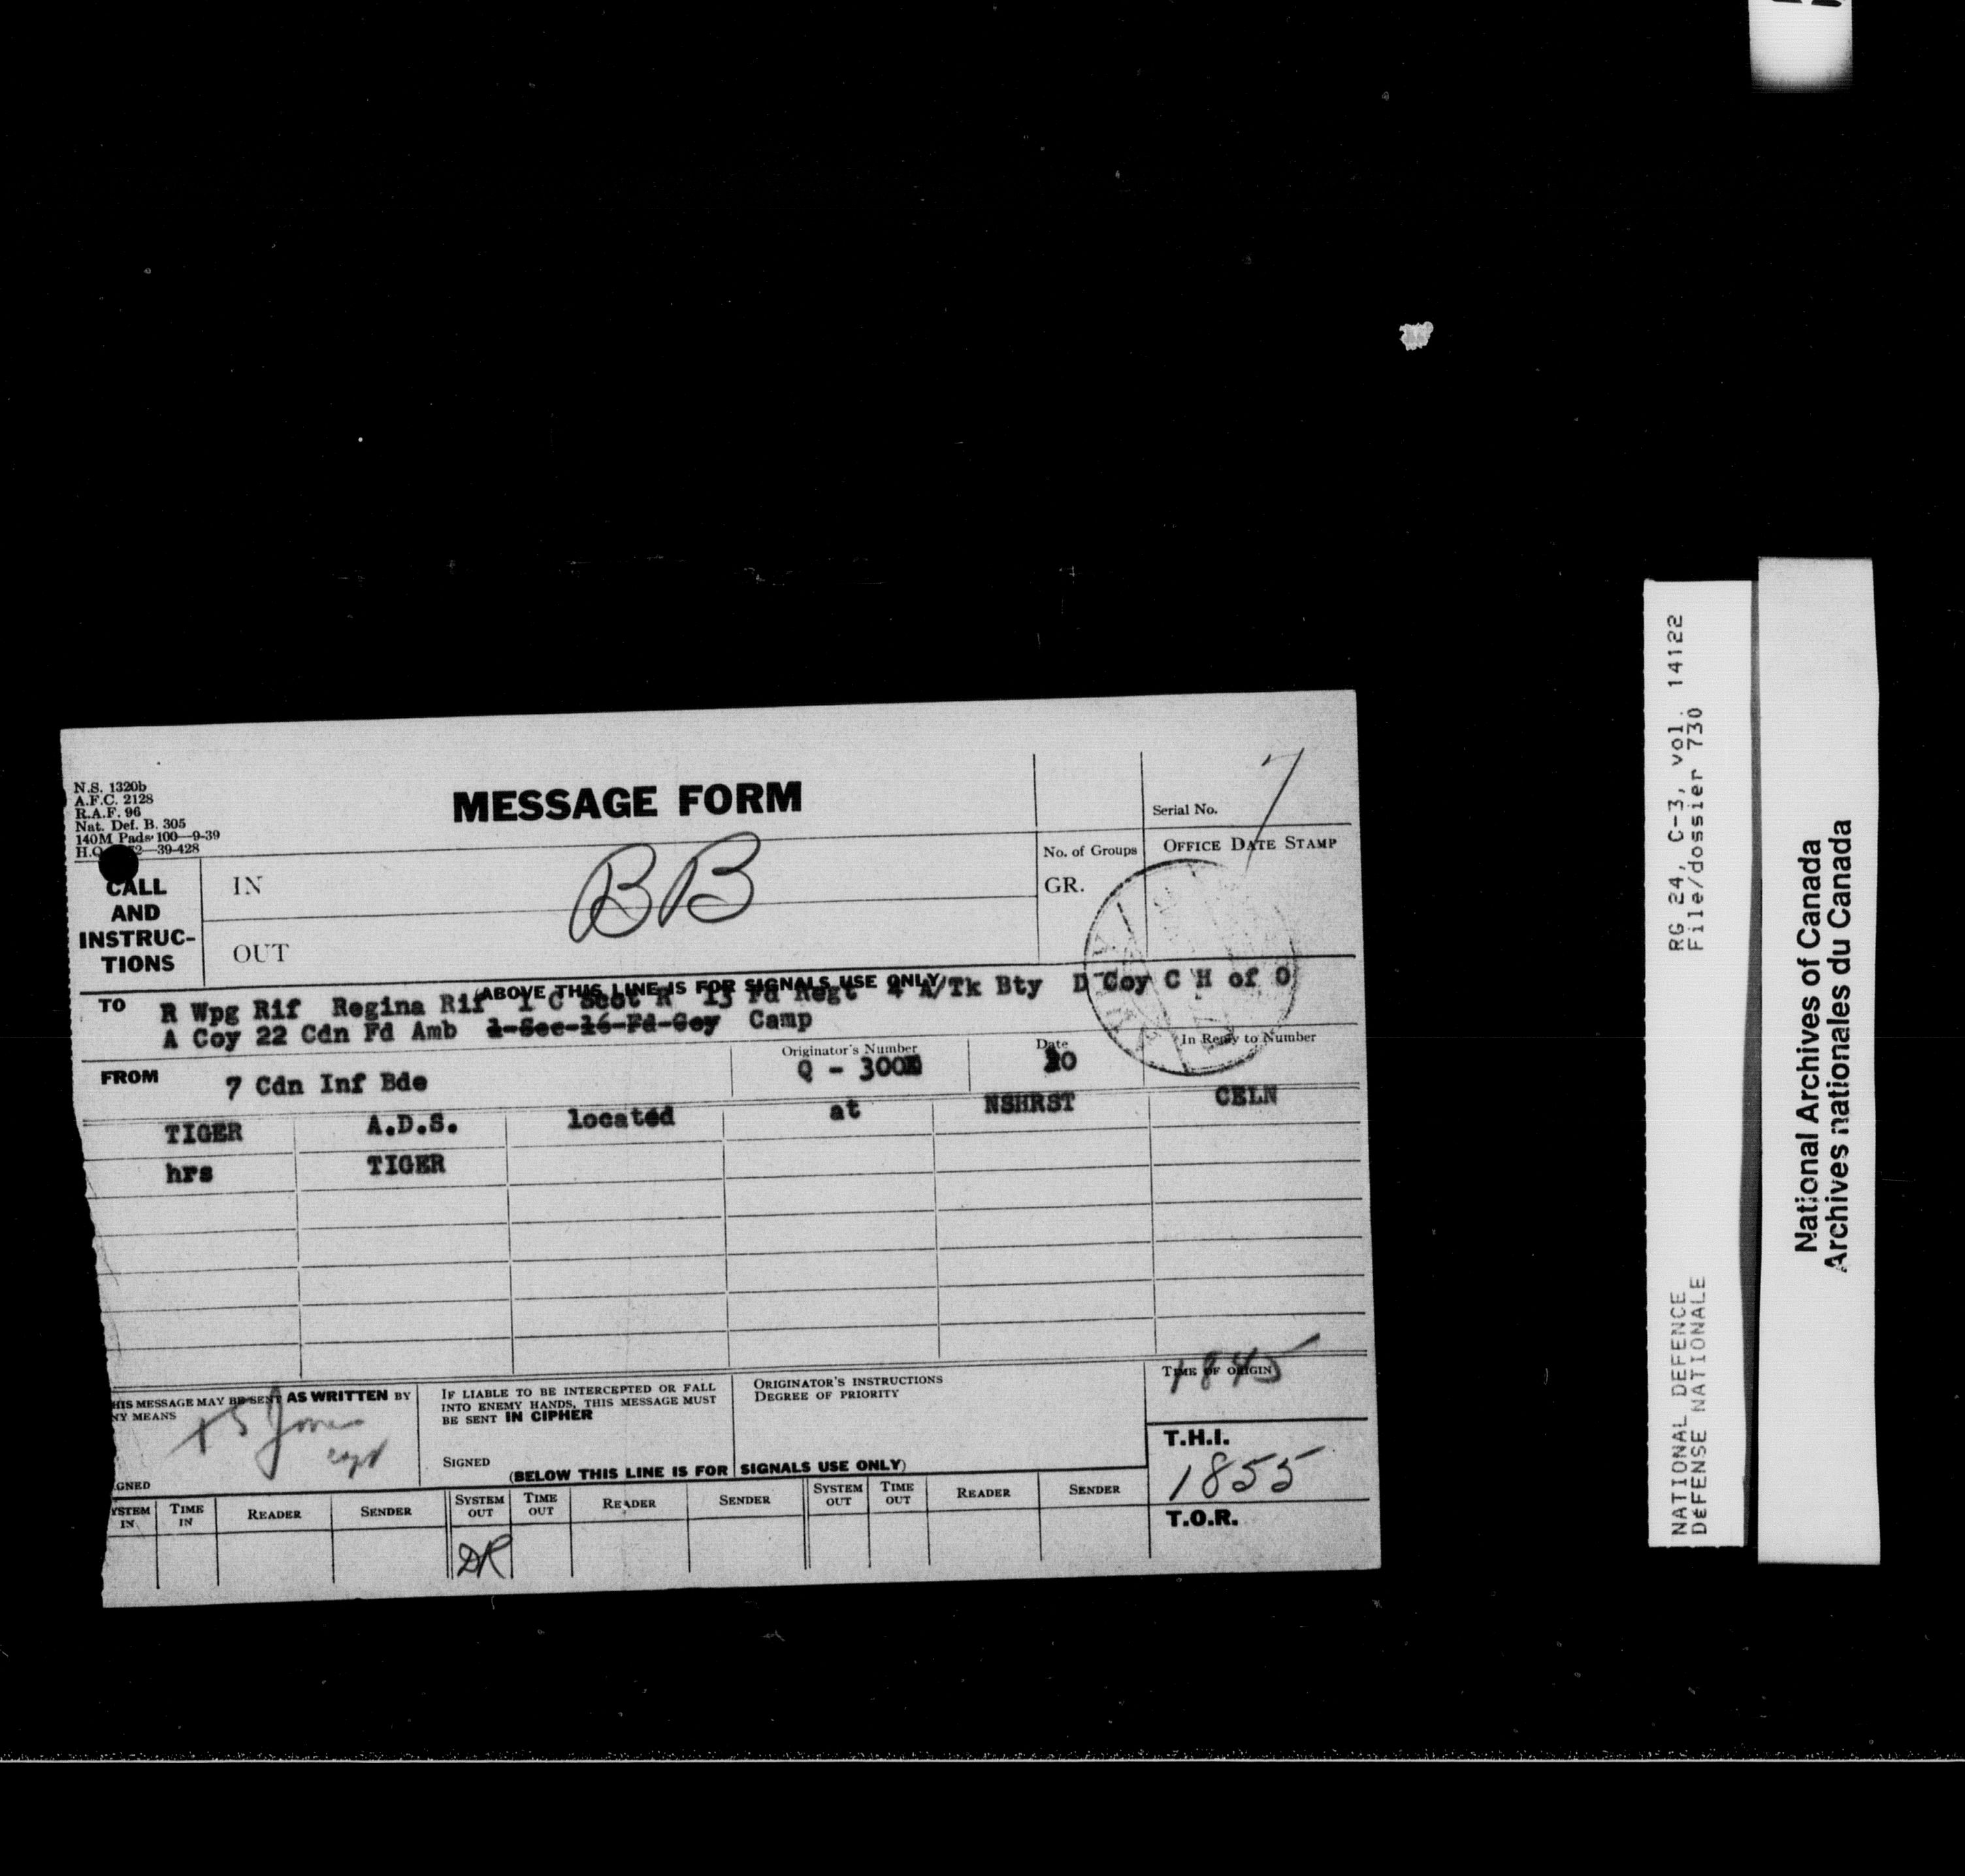 N.S. 1320b
A.F.C. 2128
R.A.F. 96
Nat. Def. B. 305
140M Pads 100—9-39
H.Q. 2—39-428
MESSAGE FORM
Serial No. 7
CALL AND INSTRUC-TIONS
IN
OUT
BB
No. of Groups
GR.
OFFICE DATE STAMP
(ABOVE THIS LINE IS FOR SIGNALS USE ONLY)
TO R Wpg Rif Regina Rif 1 C Scot R 13 Fd Regt 4 A/Tk Bty D Coy C H of O
A Coy 22 Cdn Fd Amb 1 Sec 16 Fd Coy Camp
FROM 7 Cdn Inf Bde
Originator's Number
Q - 300
Date
20
In Reply to Number
TIGER A.D.S. located at NSHRST CELN
hrs TIGER
HIS MESSAGE MAY BE SENT AS WRITTEN BY
NY MEANS
capt
GNED
IF LIABLE TO BE INTERCEPTED OR FALL
INTO ENEMY HANDS, THIS MESSAGE MUST
BE SENT IN CIPHER
SIGNED
ORIGINATOR'S INSTRUCTIONS
DEGREE OF PRIORITY
TIME OF ORIGIN
1845
T.H.I.
1855
T.O.R.
(BELOW THIS LINE IS FOR SIGNALS USE ONLY)
YSTEM IN TIME IN READER SENDER SYSTEM OUT TIME OUT READER SENDER SYSTEM OUT TIME OUT READER SENDER
DR
RG 24, C-3, vol. 14122
File/dossier 730
NATIONAL DEFENCE
DÉFENSE NATIONALE
National Archives of Canada
Archives nationales du Canada